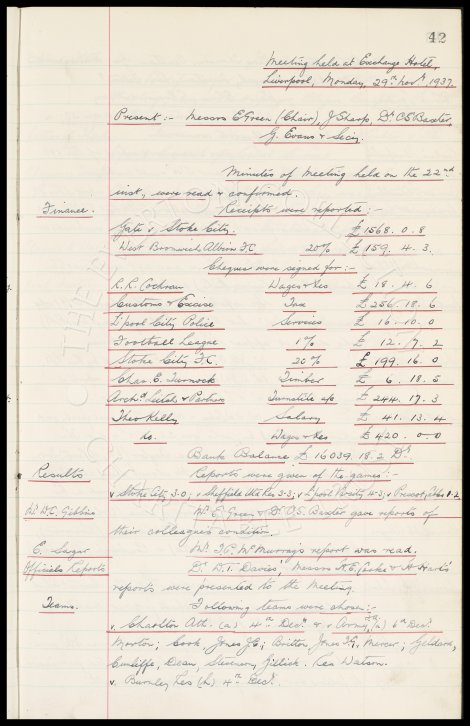 42
Meeting held at Exchange Hotel,
Liverpool, Monday, 29th Novr. 1937.
Present :- Messrs E Green (Chair), J Sharp, Dr. C S Baxter,
G. Evans & Secy.
Minutes of Meeting held on the 22nd
inst., were read & confirmed.
Finance. Receipts were reported :-
Gate v. Stoke City. £ 1568. 0. 8
West Bromwich Albion FC 20% £ 159. 4. 3.
Cheques were signed for :-
R.R. Cochran Wages & £ 18. 4. 6
Customs & Excise Tax £ 256. 18. 6
L'pool City Police Services £ 16. 10. 0
Football League 1% £ 12. 7. 2
Stoke City F.C. 20% £ 199. 16. 0
Chas. E. Turnock Timber £ 6. 18. 5
Archd. Leitch & Partners Turnstile a/c £ 244. 17. 3
Theo Kelly Salary £ 41. 13. 4
do. Wages & £ 420. 0. 0
Bank Balance £ 16039. 18. 2 Dr.
Results Reports were given of the games :-
v. Stoke City 3.0; v Sheffield Utd Res 3-3; v L'pool 4-3; v Prescot 1-2
W.C. Gibbins Mr. E. Green & Dr. C.S. Baxter gave reports of
their colleagues condition.
E. Sagar Mr. McMurray's report was read.
Officials Reports D.T. Davies, Messrs H.E. Cooke & H. Hart's
reports were presented to the Meeting.
Teams. Following teams were chosen :-
v. Charlton Ath. (a) 4th Decr. & v. Army (a) 6th Decr.
Morton; Cook, Jones J.E.; Britton, Jones T.G., Mercer; Geldard,
Cunliffe, Dean, Stevenson, Gillick. Res Watson.
v. Burnley Res (h) 4th Decr.